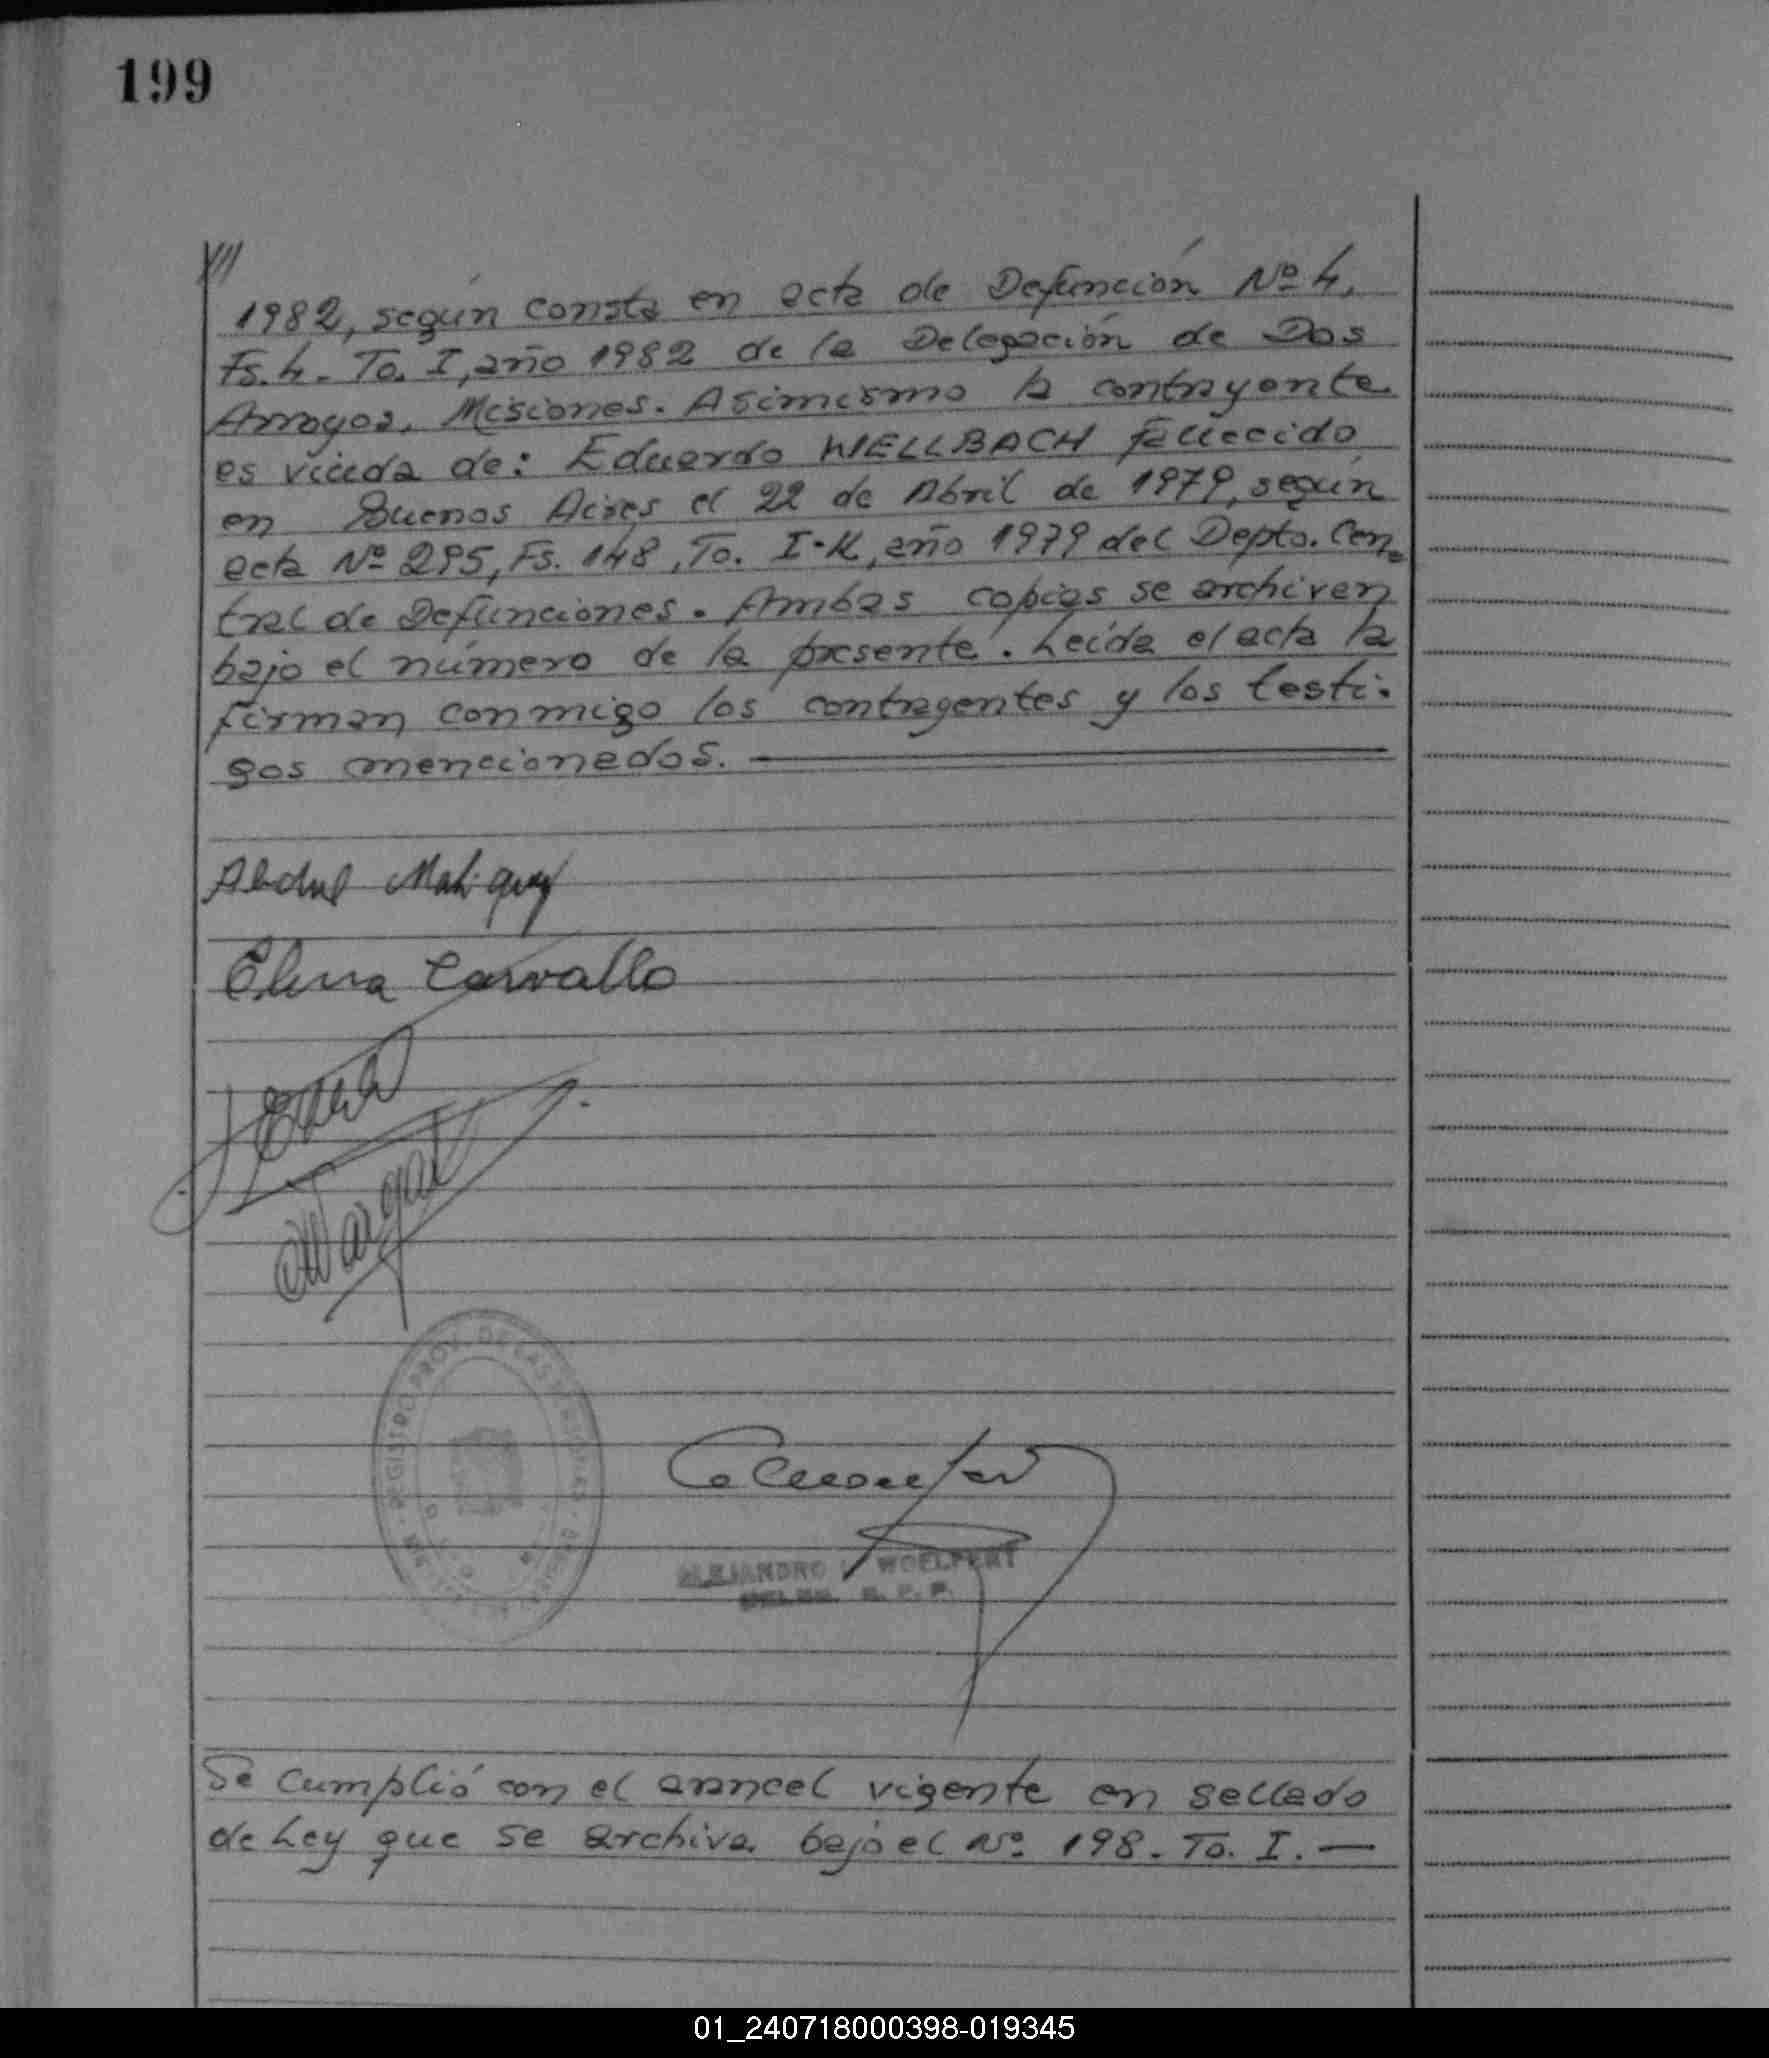 199
///
1982, según consta en acta de Defunción Nº 4,
Fs. 4. To. I, año 1982 de la Delegación de Dos
Arroyos, Misiones. Asimismo la contrayente
es viuda de: Eduardo WELLBACH fallecido
en Buenos Aires el 22 de Abril de 1979, según
acta Nº 295, Fs. 148, To. I-K, año 1979 del Depto. Cen-
tral de Defunciones. Ambas copias se archivan
bajo el número de la presente. Leída el acta la
firman conmigo los contrayentes y los testi-
gos mencionados.
Elena Carvallo
REGISTRO PROV. DE LAS PERSONAS
ALEJANDRO WOELFERT
DELEG. R. P. P.
Se cumplió con el arancel vigente en sellado
de Ley que se archiva bajo el Nº 198. To. I. —
01_240718000398-019345